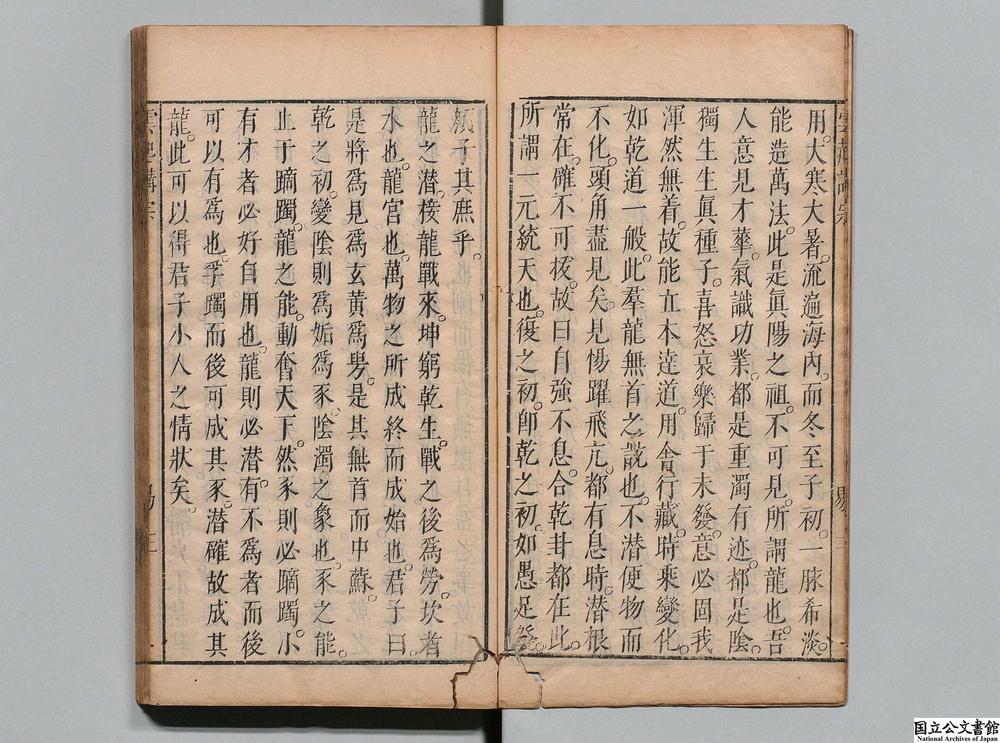 用。大寒大暑。流遍海內。而冬至子初。一脉希淡。
能造萬法。此是眞陽之祖。不可見。所謂龍也。吾
人意見才華。氣識功業。都是重濁有迹。都是陰。
獨生生眞種子。喜怒哀樂歸于未發。意必固我
渾然無着。故能立本達道。用舍行藏。時乘變化。
如乾道一般。此羣龍無首之說也。不潜便物而
不化。頭角盡見矣。見惕躍飛亢。都有息時。潜根
常在。確不可拔。故曰自強不息。合乾卦都在此。
所謂一元統天也。復之初。卽乾之初。如愚足發。
顏子其庶乎。
龍之潜。接龍戰來。坤窮乾生。戰之後爲勞。坎者
水也。龍宮也。萬物之所成終而成始也。君子曰。
是將爲見爲玄黃爲旉。是其無首而中蘇。
乾之初。變陰則爲姤爲豕。陰濁之象也。豕之能。
止于蹢躅。龍之能。動奮天下。然豕則必蹢躅。小
有才者必好自用也。龍則必潜。有不爲者而後
可以有爲也。孚躅而後可成其豕。潜確故成其
龍。此可以得君子小人之情狀矣。
易
国立公文書館
National Archives of Japan